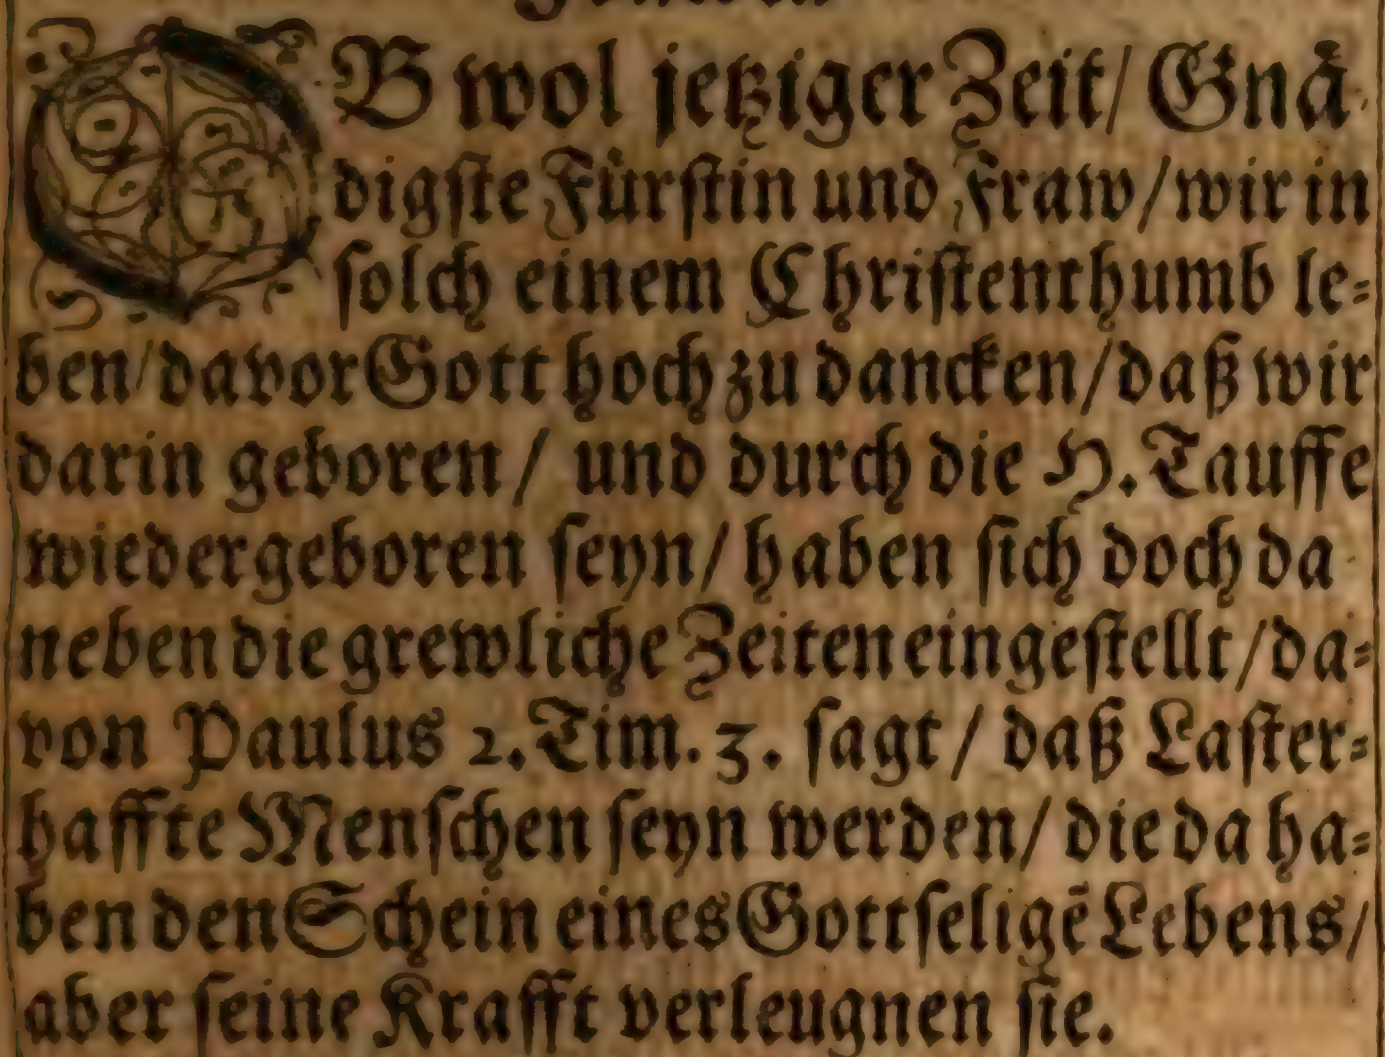 OB wol jetziger Zeit/ Gnaͤ-
digste Fuͤrstin und Fraw/ wir in
solch einem Christenthumb le-
ben/ davor Gott hoch zu dancken/ daß wir
darin geboren/ und durch die H. Tauffe
wiedergeboren seyn/ haben sich doch da
neben die grewliche Zeiten eingestellt/ da-
von Paulus 2. Tim. 3. sagt/ daß Laster-
haffte Menschen seyn werden/ die da ha-
ben den Schein eines Gottseligẽ Lebens/
aber seine Krafft verleugnen sie.